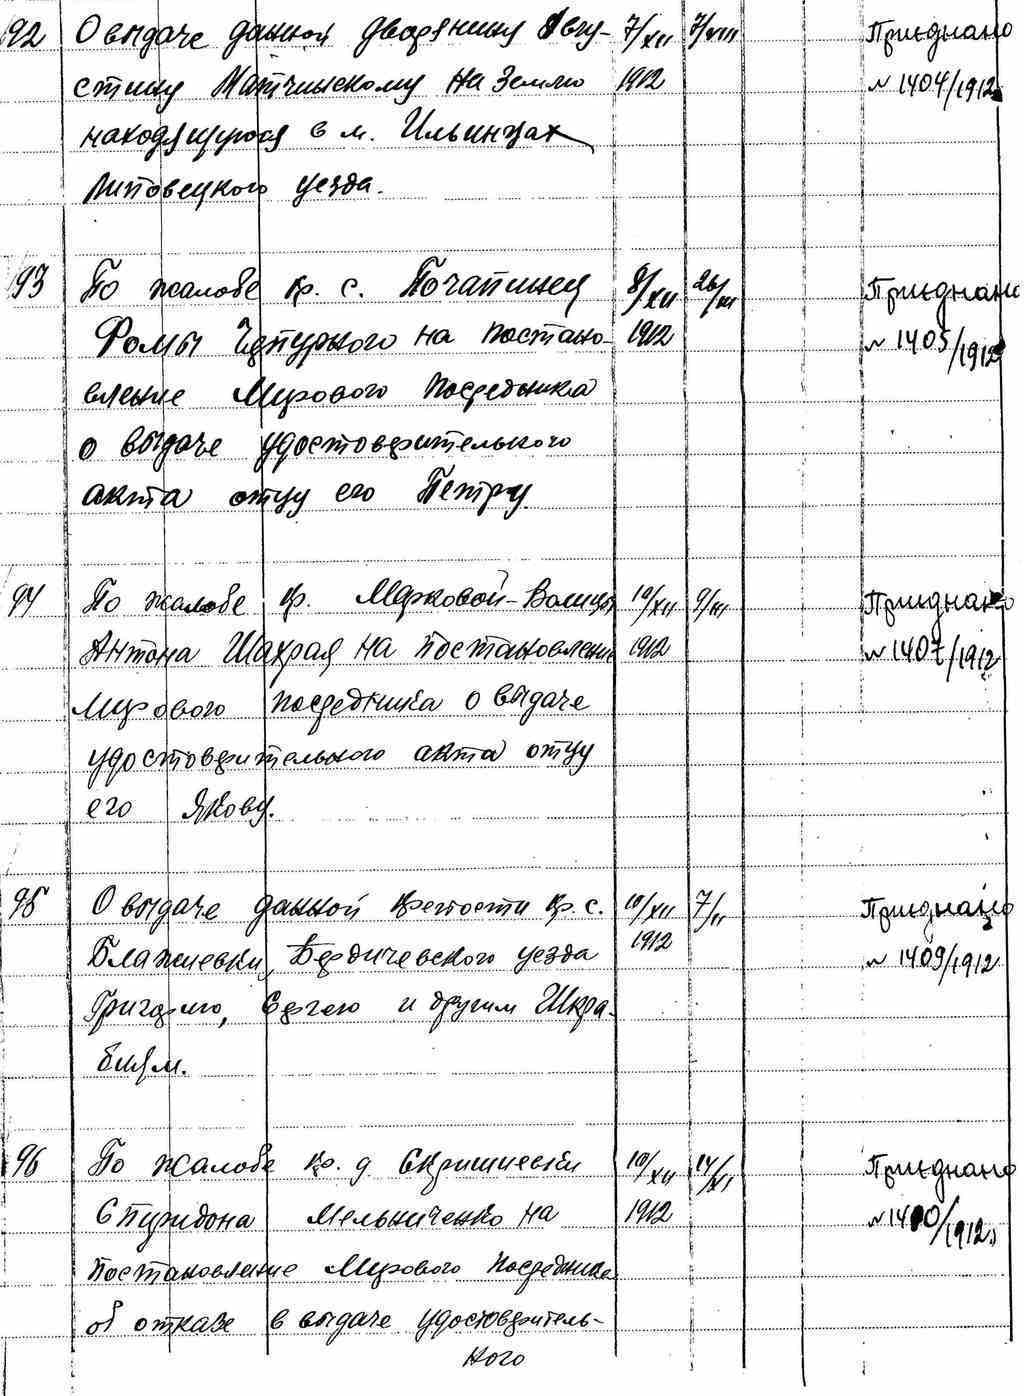 92 О выдаче данной дворянину Авгу- 7/XII 7/VIII Приєднано
стину Матчинскому на землю 1912 № 1404/1912
находящуюся в м. Ильинцах
Липовецкого уезда.
93 По жалобе кр. с. Почапинец 8/XII 26/III Приєднано
Фомы Чепурного на постано- 1912 № 1405/1912
вление Мирового Посредника
о выдаче удостоверительного
акта отцу его Петру.
94 По жалобе кр. Марковой-Волицы 10/XII 9/III Приєднано
Антона Шахрая на постановление 1912 № 1407/1912
Мирового посредника о выдаче
удостоверительного акта отцу
его Якову.
95 О выдаче данной крепости кр. с. 10/XII 7/II Приєднано
Блажиевки, Бердичевского уезда 1912 № 1409/1912
Григорию, Сергею и другим Шкра-
биям.
96 По жалобе кр. д. Скришиевки 10/XII 14/XI Приєднано
Спиридона Мельниченко на 1912 № 1410/1912
постановление Мирового Посредника
об отказе в выдаче удостоверитель-
ного